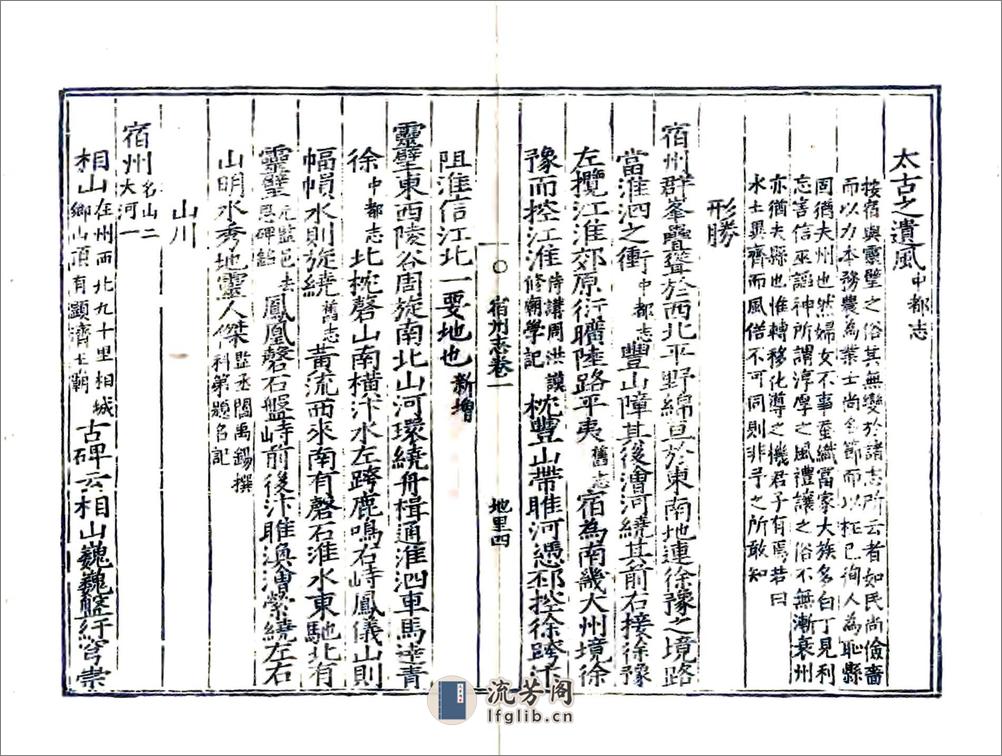 太古之遺風中都志
按宿與靈璧之俗其無變於諸志所云者如民尚儉嗇
而以力本務農為業士尚名節而以枉己徇人為恥縣
固猶夫州也然婦女不事蚕織富家大族多白丁見利
忘害信巫謟神所謂淳厚之風禮讓之俗不無漸衰州
亦猶夫縣也惟轉移化導之機君子有焉若曰
水土異齊而風俗不可同則非予之所敢知
形勝
宿州群峯矗聳於西北平野綿亘於東南地連徐豫之境路
當淮泗之衝中都志豐山障其後澮河繞其前右接徐豫
左攬江淮郊原衍曠陸路平夷舊志宿為南畿大州境徐
豫而控江淮侍講周洪謨修廟學記枕豐山帶睢河憑邳控徐跨汴
阻淮信江北一要地也新增
宿州志卷一
地里四
靈璧東西陵谷固旋南北山河環繞舟楫通淮泗車馬達青
徐中都志北枕磬山南橫汴水左跨鹿鳴右峙鳳儀山則
幅㡓水則旋繞舊志黃流西來南有磬石淮水東馳北有
靈璧元監邑去思碑銘鳳凰磬石盤峙前後汴睢渙澮縈繞左右
山明水秀地靈人傑監丞閻禹錫撰科第題名記
山川
宿州名山二大河一
相山在州西北九十里相城鄉山頂有顯濟王廟古碑云相山巍巍盤紆穹崇
流芳阁
lfglib.cn